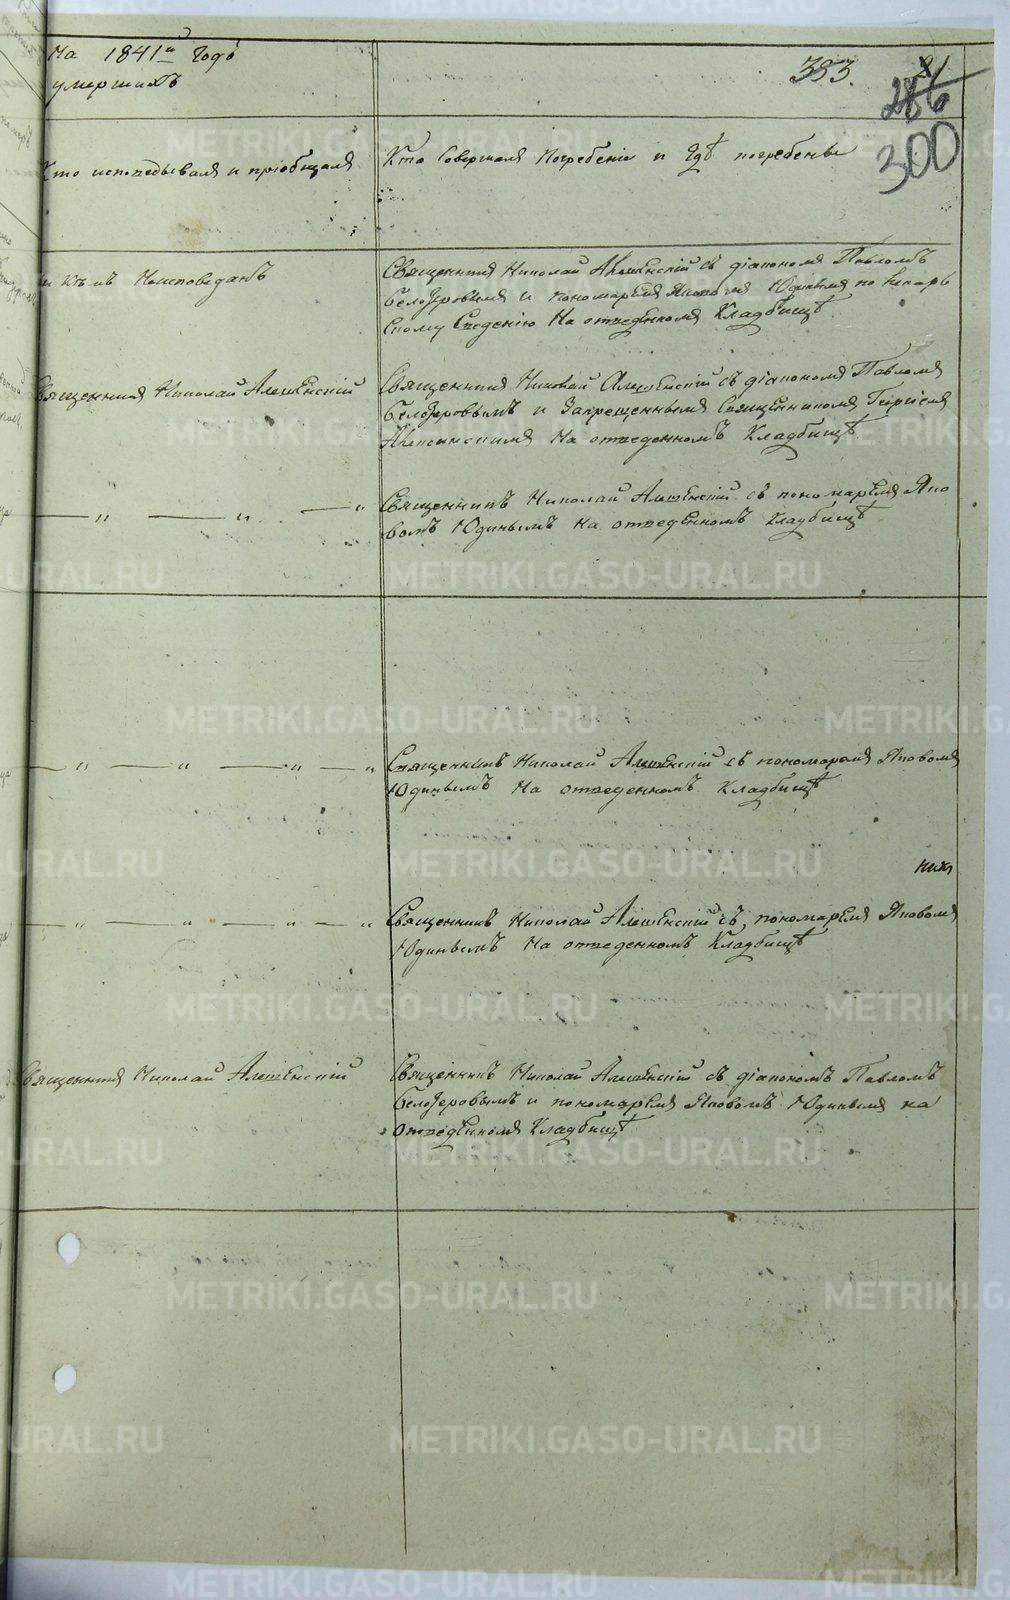 На 1841й Годъ
умершихъ
353.
21
286
300
Кто исповѣдывал и пріобщал
Кто Совершал Погребеніе и Гдѣ погребены
Неисповеданъ
Священник Николай Алешенскій съ діаконом Павломъ
Белозеровым и пономарем Яковом Юдиным по Лекарь
скому Сведенію На отведенном Кладбищѣ
Священник Николай Алешенскій
Священник Николай Алешенскій съ діаконом Павлом
Белозеровымъ и Запрещенным Священником
На отведенномъ Кладбищѣ
— „ — „ — „
Священникъ Николай Алешенскій съ пономарем Яко
вомъ Юдинымъ На отведенномъ Кладбищѣ
— „ — „ — „ — „
Священникъ Николай Алешенскій съ пономарем Яковом
Юдинымъ На отведенномъ Кладбищѣ
— „ — „ — „ — „
Священникъ Николай Алешенскій съ пономарем Яковом
Юдинымъ На отведенномъ Кладбищѣ
Священник Николай Алешенскій
Священникъ Николай Алешенскій съ діакономъ Павломъ
Белозеровымъ и пономарем Яковомъ Юдиным на
отведенном Кладбищѣ
METRIKI.GASO-URAL.RU